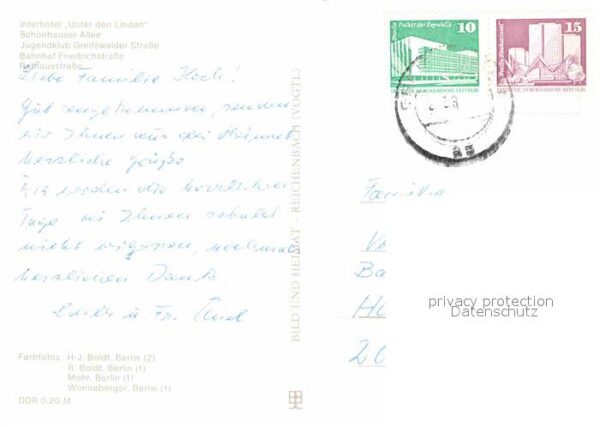 Interhotel „Unter den Linden"
Schönhauser Allee
Jugendklub Greifswalder Straße
Bahnhof Friedrichstraße
Rathausstraße
Liebe Familie Koch!
Gut angekommen, senden
wir Ihnen aus der Heimat
herzliche Grüße
Wir werden die herrlichen
Tage bei Ihnen sobald
nicht vergessen, nochmals
herzlichen Dank.
u. Fr.
Farbfotos: H-J. Boldt, Berlin (2)
R. Boldt, Berlin (1)
Mohr, Berlin (1)
Wonneberger, Berlin (1)
DDR 0,20 M
BILD UND HEIMAT · REICHENBACH (VOGTL)
Berlin Palast der Republik
10
15
Familie
Ko
Ba
Ha
20
privacy protection
Datenschutz